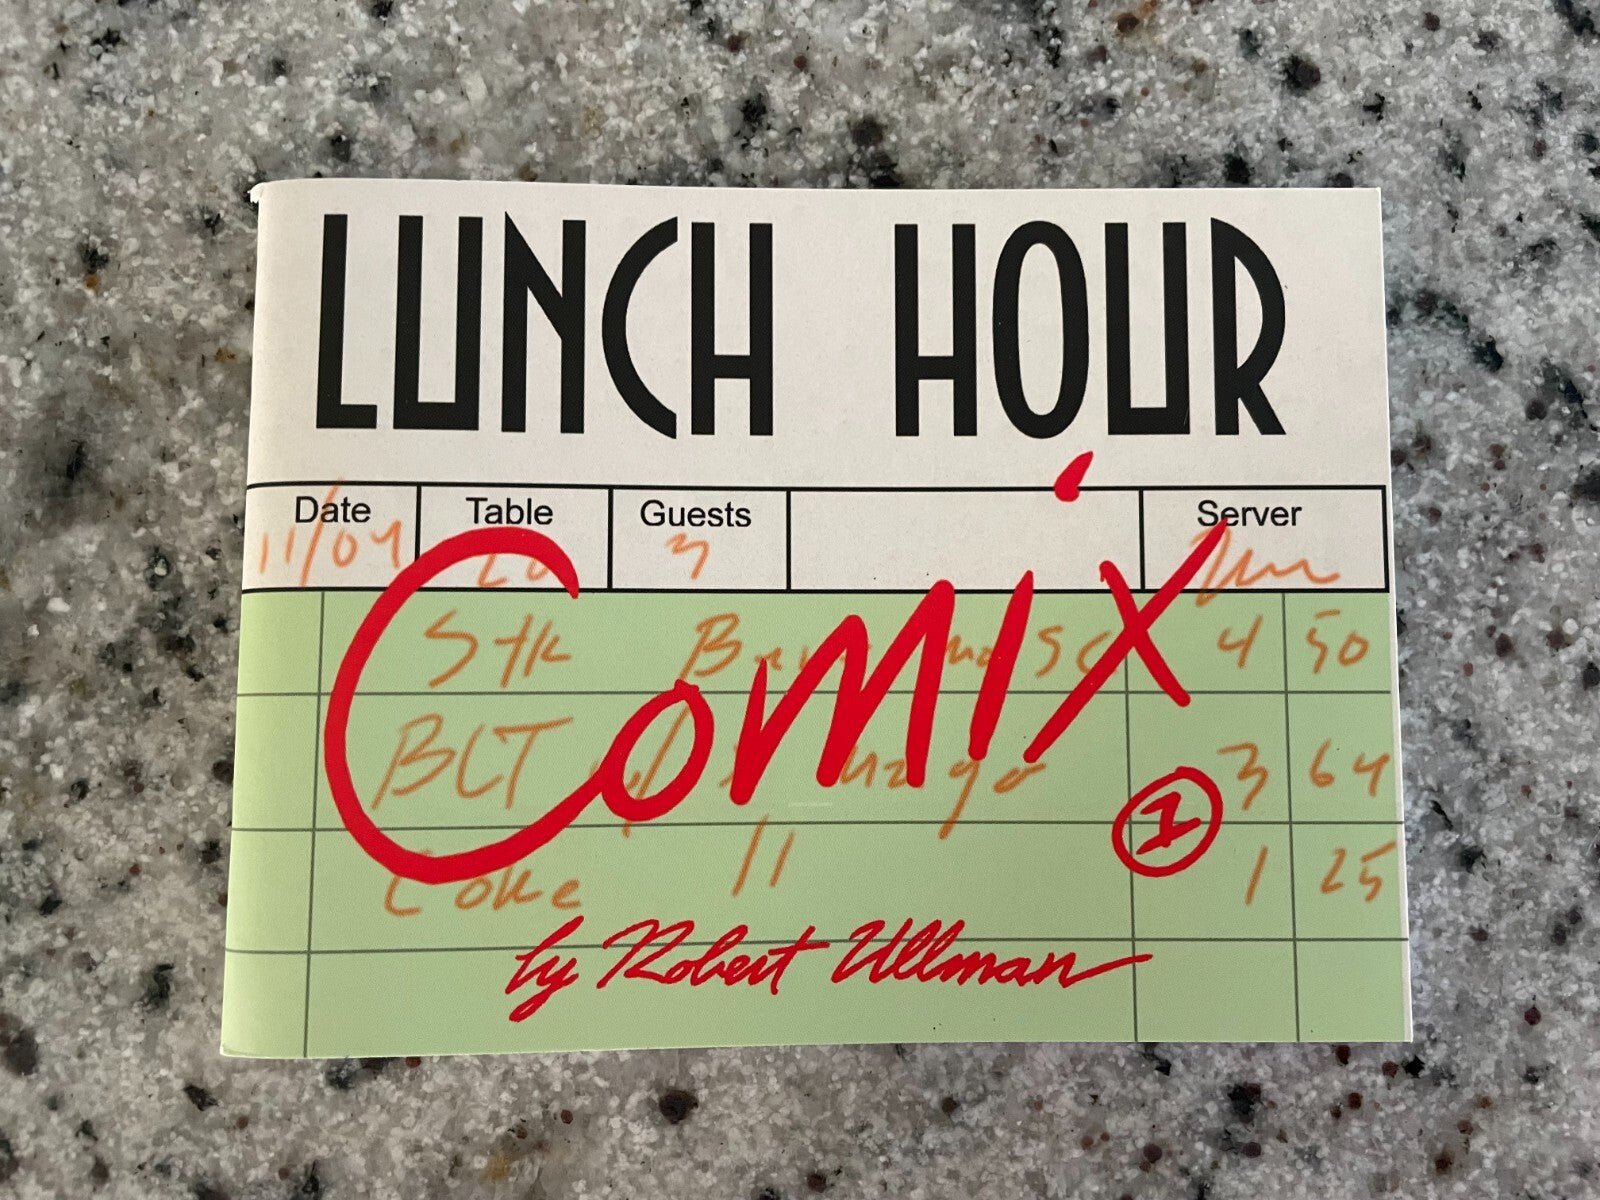 LUNCH HOUR
Date Table Guests Server
11/04 20 3
Comix
Stk 4 50
BLT w/ mayo 3 64
1
Coke 11 1 25
by Robert Ullman